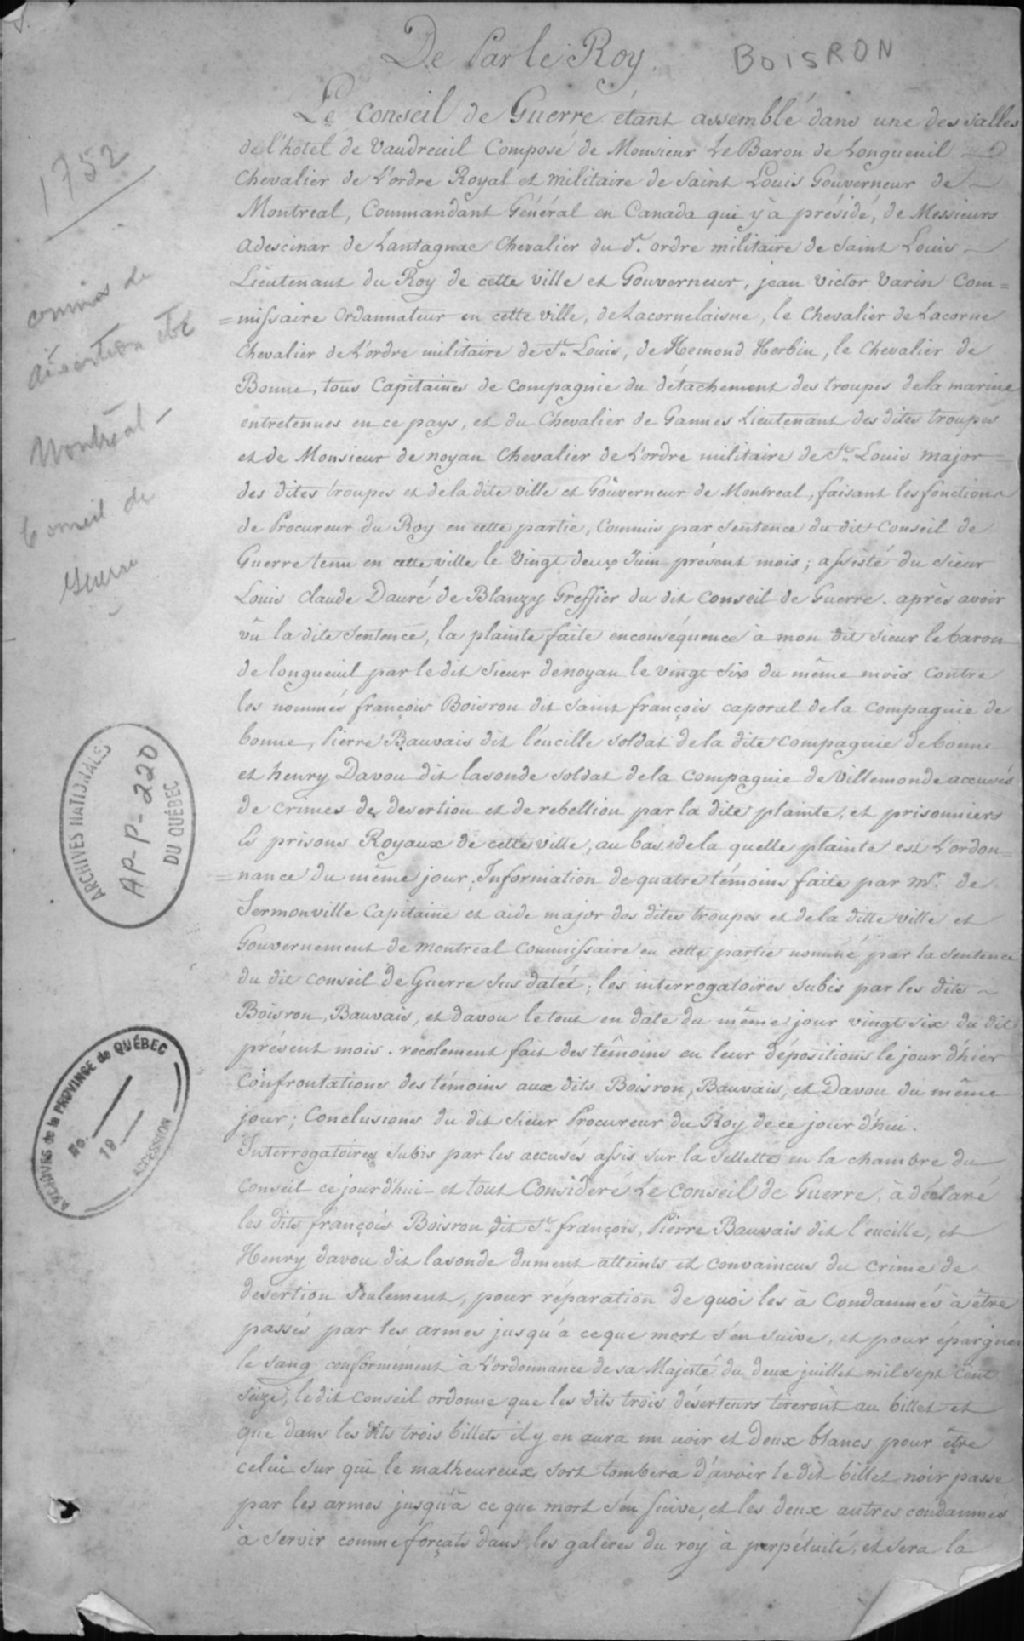 De Par le Roy.
BOISRON
Le Conseil de Guerre étant assemblé dans une des salles
de l'hôtel de Vaudreuil Composé de Monsieur Le Baron de Longueuil
Chevalier de L'ordre Royal et militaire de Saint Louis Gouverneur de
Montreal, Commandant Général en Canada qui y à présidé, de Messieurs
Adescinar de Lantagnac Chevalier du dt. ordre militaire de Saint Louis
Lieutenant du Roy de cette ville et Gouverneur, jean victor Varin Com=
=missaire Ordannateur en cette ville, de Lacornelaisne, le Chevalier de Lacorne
Chevalier de L'ordre militaire de St. Louis, de Remond Herbin, le Chevalier de
Bonne, tous Capitaines de Compagnie du détachement des troupes de la marine
entretenues en ce pays, et du Chevalier de Gannes Lieutenant des dites troupes
et de Monsieur de noyan Chevalier de L'ordre militaire de St. Louis major
des dites troupes et de la dite ville et Gouverneur de Montreal, faisant les fonctions
de Procureur du Roy en cette partie, Commis par Sentence du dit Conseil de
Guerre tenu en cette ville le Vingt deux Juin présent mois; assisté du sieur
Louis Claude Dauré de Blanzy Greffier du dit Conseil de Guerre. après avoir
vû la dite Sentence, la plainte faite enconséquence à mon dit sieur le baron
de longueuil par le dit Sieur denoyan le vingt six du même mois Contre
les nommés françois Boisron dit Saint françois caporal de la Compagnie de
bonne, Pierre Bauvais dit l'eucille soldat de la dite Compagnie de bonne
et henry Davou dit lasonde soldat de la Compagnie de Villemonde accusés
de crimes de desertion et de rebellion par la dite plainte, et prisonniers
ès prisons Royaux de cette ville, au bas de la quelle plainte est L'ordon=
=nance du même jour, Information de quatre témoins faite par Mr. de
Sermonville Capitaine et aide major des dites troupes et de la ditte ville et
Gouvernement de Montreal Commissaire en cette partie nommé par la Sentence
du dit Conseil de Guerre Sus datée; les interrogatoires Subis par les dits
Boisron, Bauvais, et davou le tout en date du même jour vingt six du dit
présent mois. recolement fait des témoins en leur dépositions le jour d'hier
Confrontations des témoins aux dits Boisron, Bauvais, et Davou du même
jour; Conclusions du dit Sieur Procureur du Roy de ce jour d'hui.
Interrogatoires Subis par les accusés assis sur la Sellette en la chambre du
Conseil ce jourd'hui et tout Considéré Le Conseil de Guerre, à déclaré
les dits françois Boisron dit St. françois, Pierre Bauvais dit l'eucille, et
Henry davou dit lasonde dument atteints et convaincus du crime de
desertion Seulement, pour réparation de quoi les à Condamnés à être
passés par les armes jusqu'à ceque mort s'en suive, et pour épargner
le sang, conformément à L'ordonnance de sa Majesté du deux juillet mil sept cent
seize, le dit Conseil ordonne que les dits trois déserteurs tireront au billet et
que dans les dits trois billets il y en aura un noir et deux blancs pour être
celui sur qui le malheureux sort tombera d'avoir le dit billet noir passé
par les armes jusqu'à ce que mort s'en suive, et les deux autres condamnés
à servir comme forçats dans les galères du roy à perpétuité, et sera la
1752
crimes de
désertion etc
Montréal-
Conseil de
Guerre
ARCHIVES NATIONALES
AP-P-220
DU QUÉBEC
ARCHIVES de la PROVINCE de QUÉBEC
No
19
ACCESSION